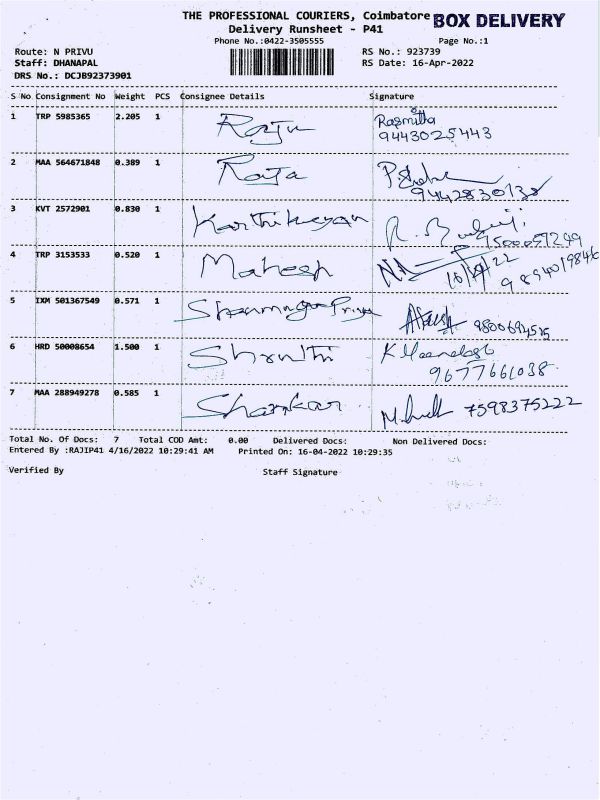 THE PROFESSIONAL COURIERS, Coimbatore BOX DELIVERY
Delivery Runsheet - P41
Phone No.:0422-3505555 Page No.:1
Route: N PRIVU RS No.: 923739
Staff: DHANAPAL RS Date: 16-Apr-2022
DRS No.: DCJB92373901
S No Consignment No Weight PCS Consignee Details Signature
1 TRP 5985365 2.205 1 Raju Rasmitha
9443025443
2 MAA 564671848 0.389 1 Raja
9442830138
3 KVT 2572901 0.830 1 Karthikeyan R.
9500051299
4 TRP 3153533 0.520 1 Mahesh 16/4/22
5 IXM 501367549 0.571 1 Shanmuga Priya 9800694515
6 HRD 50008654 1.500 1 Shruthi
9677661038
7 MAA 288949278 0.585 1 Shankar 7598375222
Total No. Of Docs: 7 Total COD Amt: 0.00 Delivered Docs: Non Delivered Docs:
Entered By :RAJIP41 4/16/2022 10:29:41 AM Printed On: 16-04-2022 10:29:35
Verified By Staff Signature